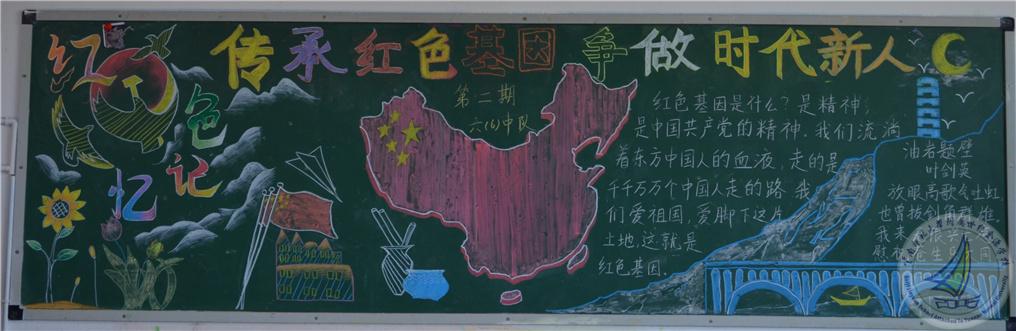 传承红色基因争做时代新人
红色记忆
第二期
六(6)中队
红色基因是什么?是精神;
是中国共产党的精神.我们流淌
着东方中国人的血液,走的是
千千万万个中国人走的路.我
们爱祖国,爱脚下这片
土地,这就是
红色基因.
油岩题壁
叶剑英
放眼高歌气吐虹
也曾拔剑角群雄.
我来